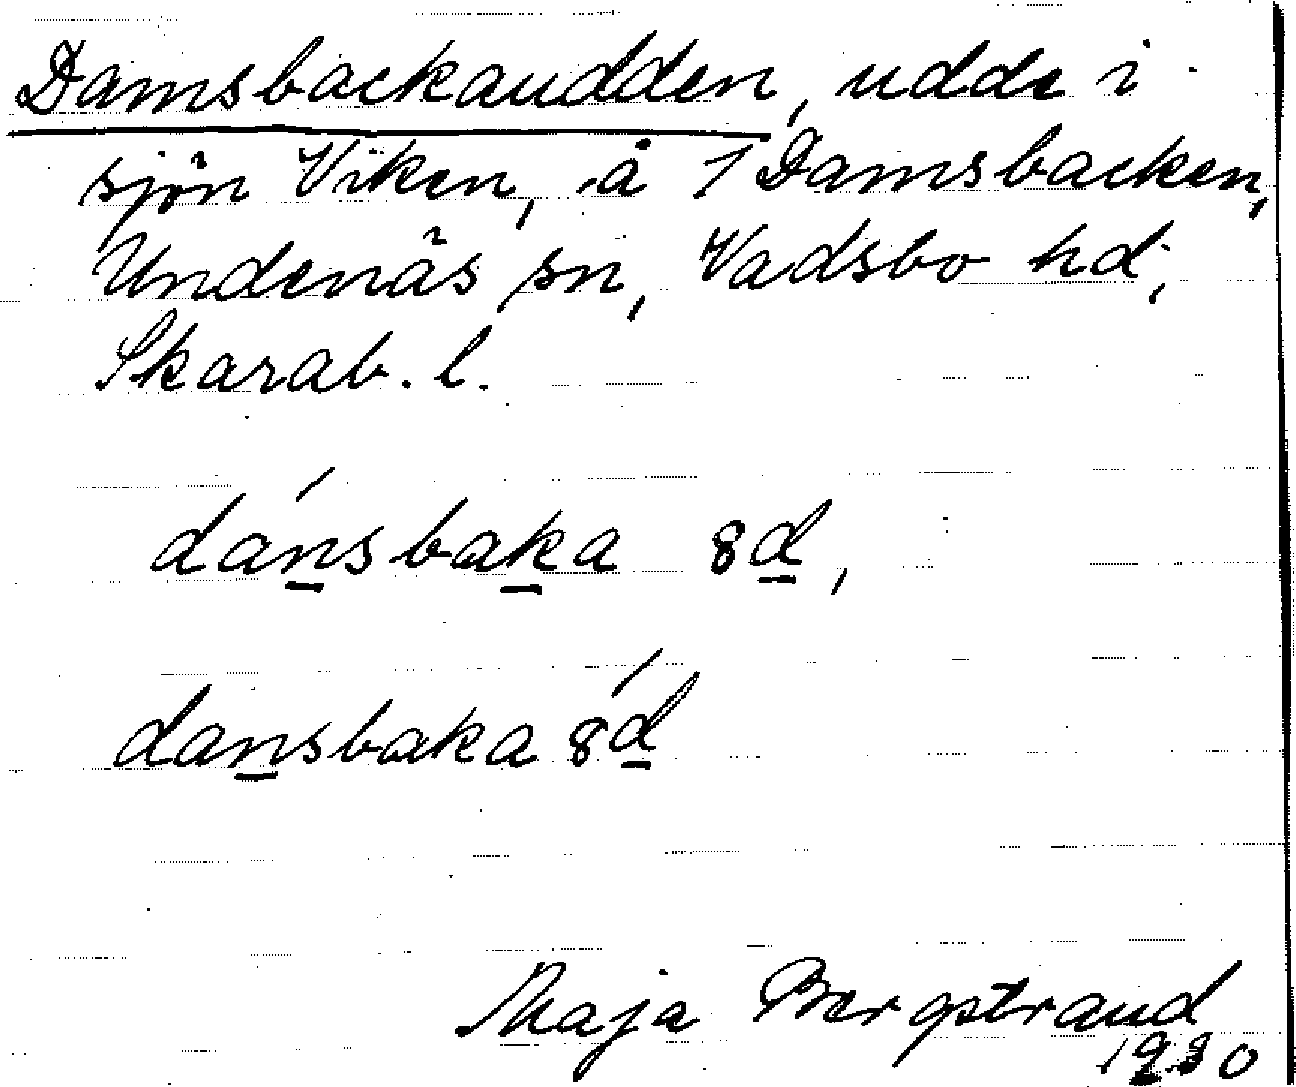 Damsbackaudden, udde i
sjön Viken, å 1 Damsbacken,
Undenäs sn, Vadsbo hd,
Skarab. l.
dánsbaka 8d,
dansbaka 8́d
Maja Bergstrand
1930